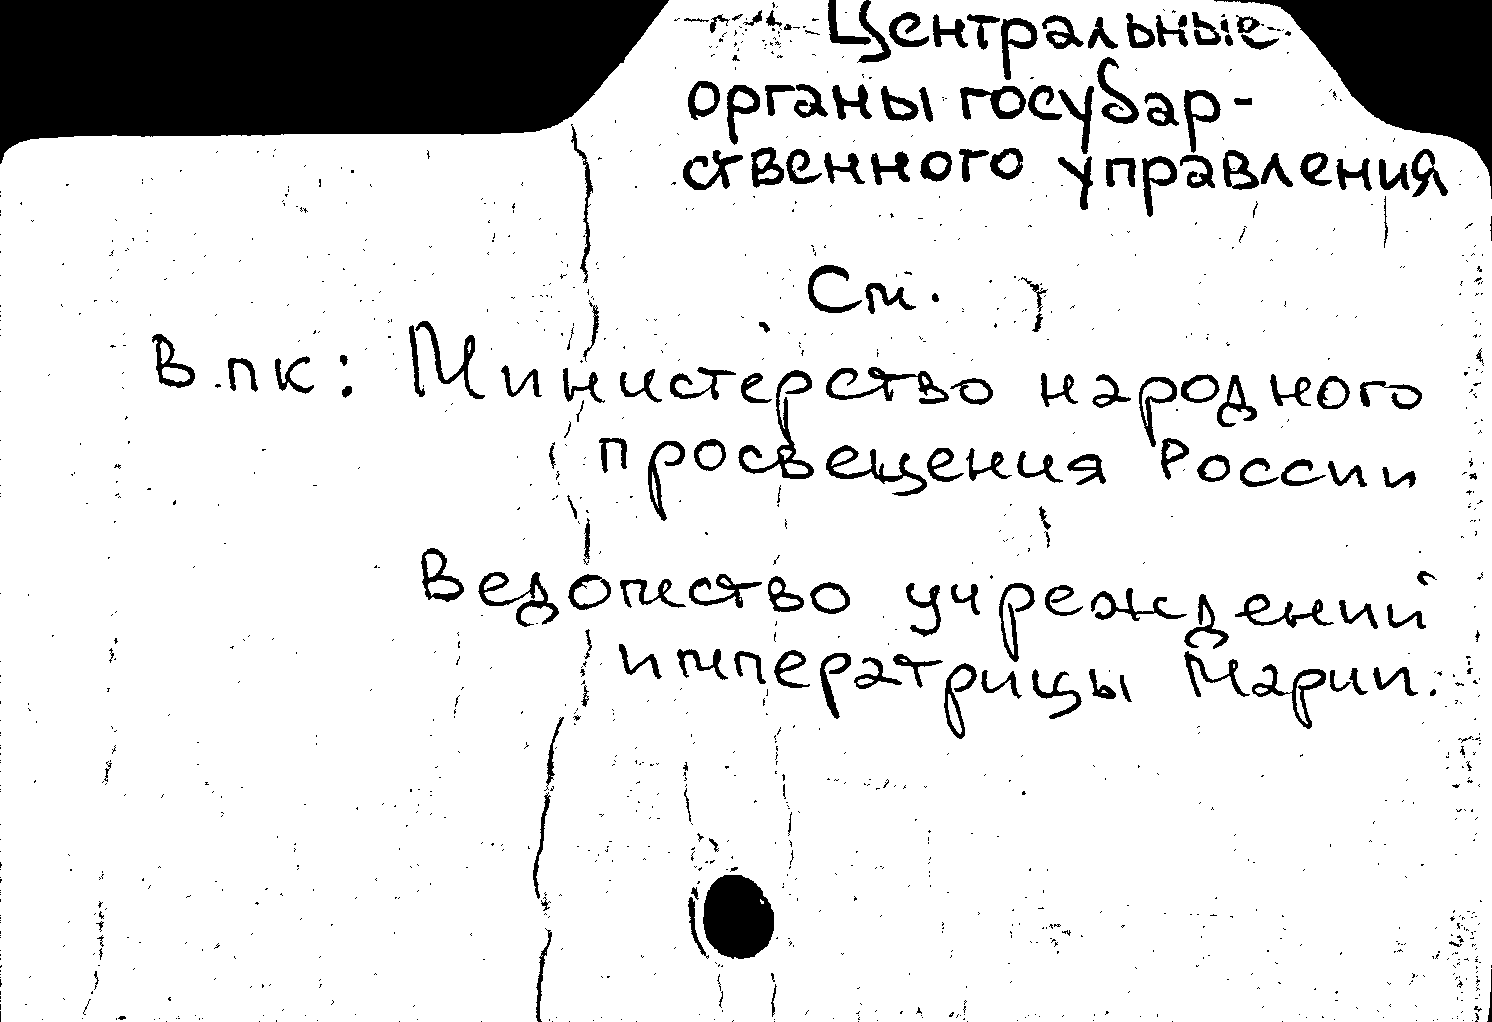 Центральные
органы государ-
ственного управления
См.
В.пк: Министерство народного
просвещения России
Ведомство учреждений
императрицы Марии.